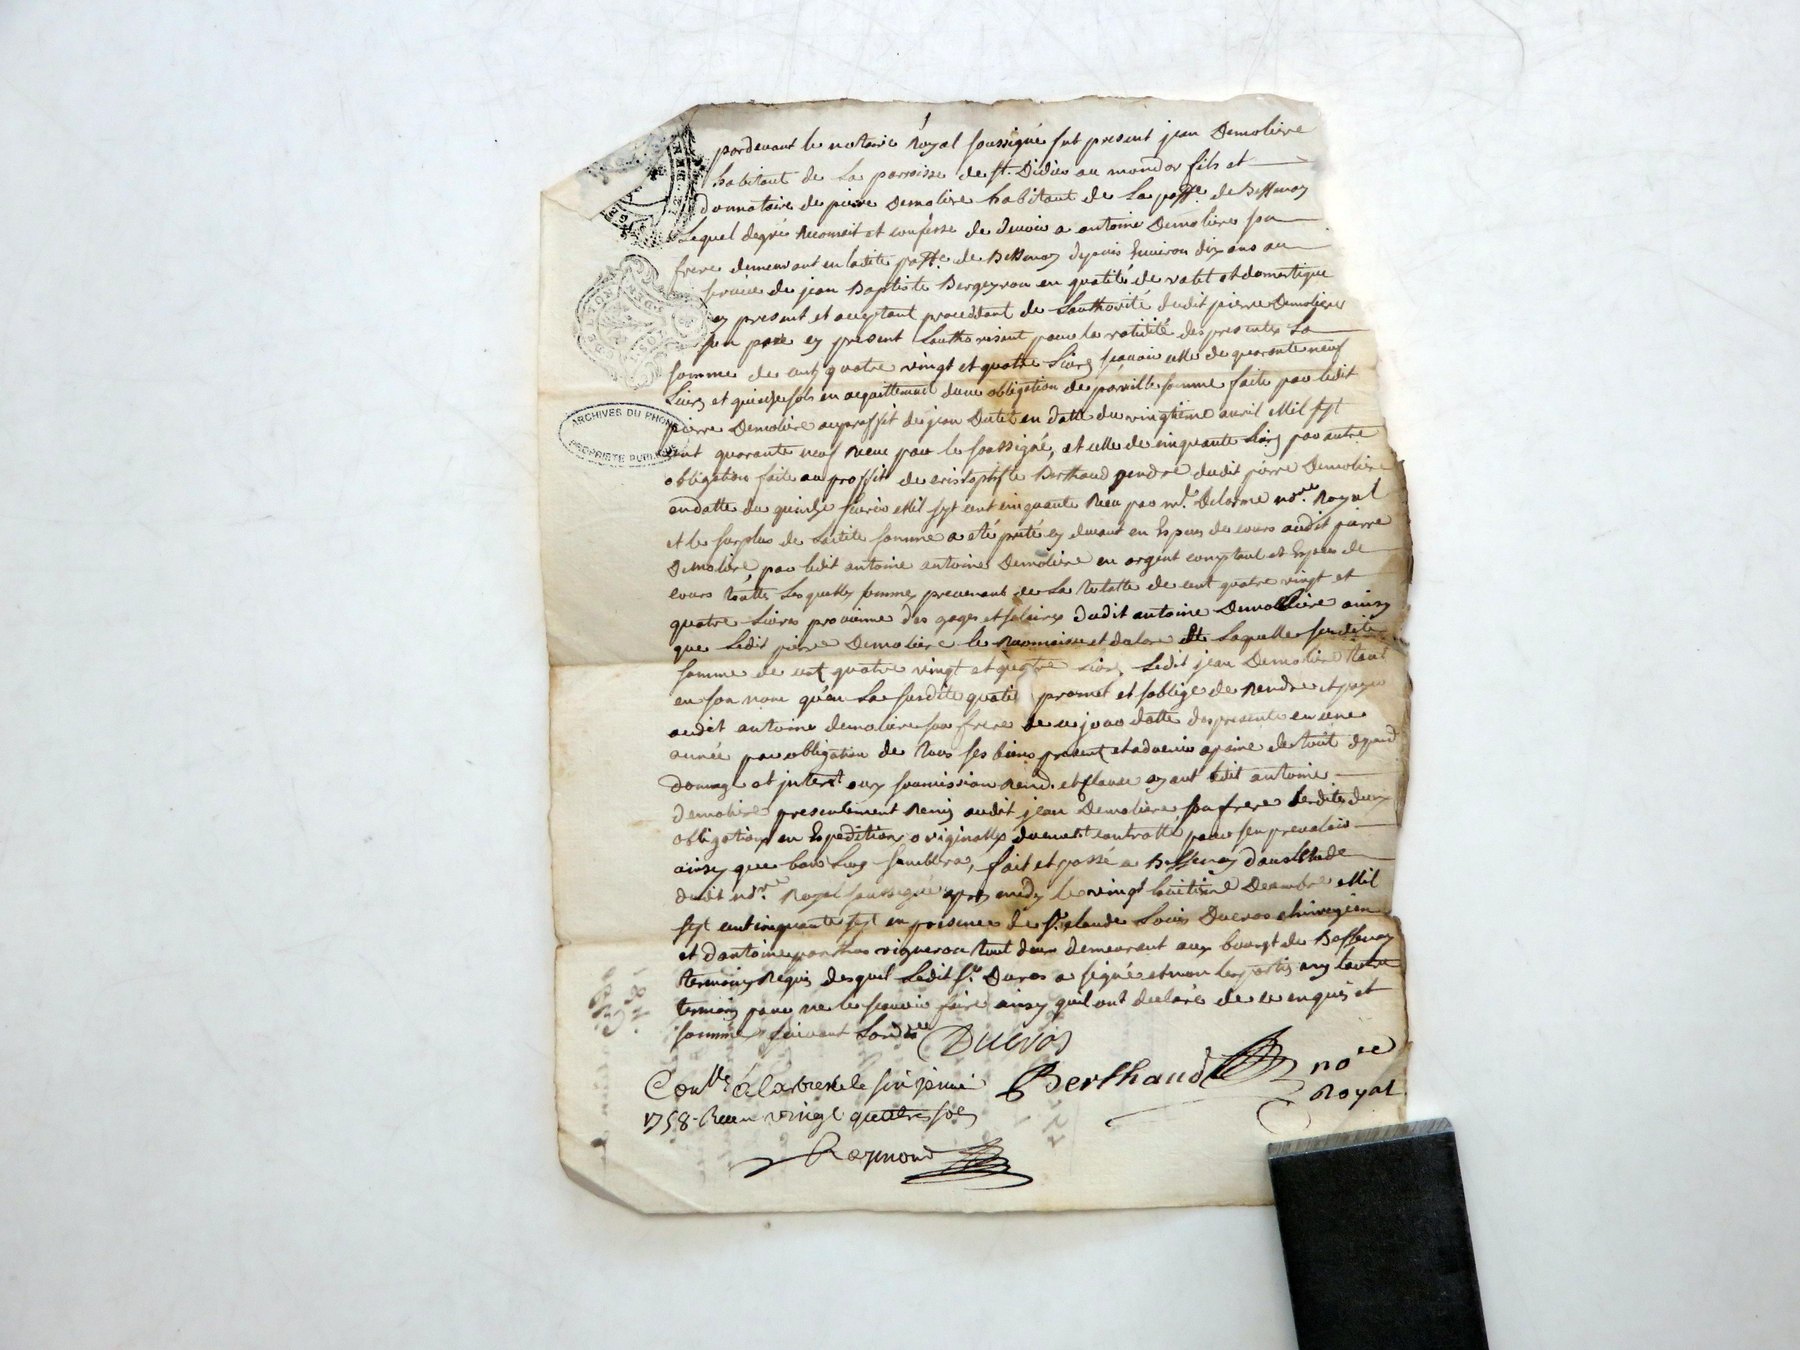 1
pardevant le notaire Royal soussigné fut present jean Demoliere
habitant de La parroisse de st. Didier au mondor fils et
donnataire de pierre Demoliere habitant de La psse. de Bessenay
Lequel degrés Reconoit et confesse de devoir a antoine Demoliere son
frere demeurant en ladite psse. de Bessenay depuis Environ dix ans au
service de jean Baptiste Bergeyron en qualité de valet et domestique
cy present et acceptant procedant de Lauthorité dudit pierre Demoliere
son pere cy present Lauthorisent pour la validité des presentes La
somme de cent quatre vingt et quatre Livres sçavoir celle de quarante neuf
Livres et quinze sols en acquittement dune obligation de pareille somme faite par ledit
pierre Demoliere auproffit de jean Dutel en datte du vingtieme avril Mil sept
cent quarante neuf Receu par le soussigné, et celle de cinquante Livres par autre
obligation faite au proffit de cristophle Berthaud gendre dudit pierre Demoliere
en datte du quinze fevrier Mil sept cent cinquante Receu par me. Delorme nore. Royal
et le surplus de Ladite somme a eté preté cy devant en Especes de cours audit pierre
Demoliere par ledit antoine antoine Demoliere en argent comptant et Especes de
cours touttes Lesquelles sommes provenant de La totalle de cent quatre vingt et
quatre Livres provienne des gages et salaires dudit antoine Demolliere ainsy
que Ledit pierre Demoliere le Reconoisse et declare Laquelle susdite
somme de cent quatre vingt et quatre Livres Ledit jean Demoliere tant
en son nom qu'en La susdite qualité promet et soblige de Rendre et payer
audit antoine demoliere son frere de ce jour datte des presentes en une
année par obligation de tous ses biens present et advenir a paine de tout depend
domage et interet aux soumission Rend. et clause ayant ledit antoine
demoliere presentement Remis audit jean Demoliere son frere lesdites deux
obligations en Expeditions originalles duement controllé pour sen prevaloir
ainsy que bon Luy semblera, fait et passé a Bessenay dans Létude
dudit nore. Royal soussigné apres midy le vingt huitieme Decembre Mil
sept cent cinquante sept en presence de sr. claude Louis Ducros chirurgien
et dantoine vigneron tout deux demeurant aux bourgt de Bessenay
temoins Requis desquel Ledit sr. Ducros a signé et non les partis ny lautre
temoin pour ne le sçavoir faire ainsy quil ont declaré de ce enquis et
sommés suivant Lordce
Ducros
Berthaud nore
Royal
Conlle. á labresle le six janvier
1758. Receu vingt quatre sols
Raymond
ARCHIVES DU RHONE
PROPRIETE PUBLIQUE